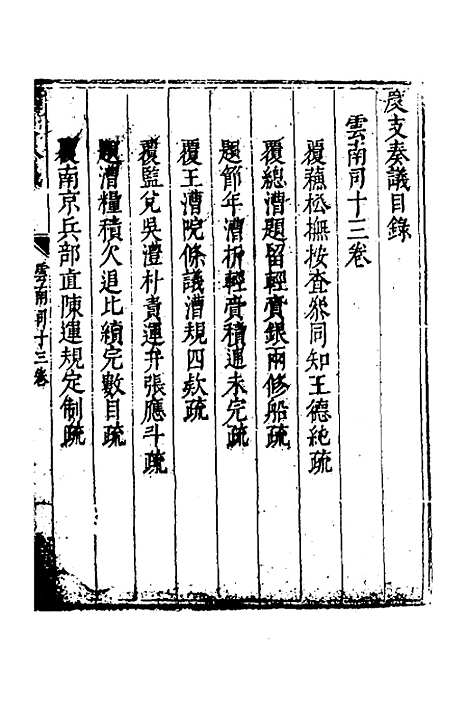 度支奏議目錄
雲南司十三卷
覆蘓松撫按查叅同知王德純疏
覆總漕題留輕賫銀兩修船疏
題節年漕折輕賫積逋未完疏
覆王漕院條議漕規四欵疏
覆監兌吳澧朴責運弁張應斗疏
題漕糧積欠追比續完數目疏
覆南京兵部直陳運規定制疏
雲南司十三卷